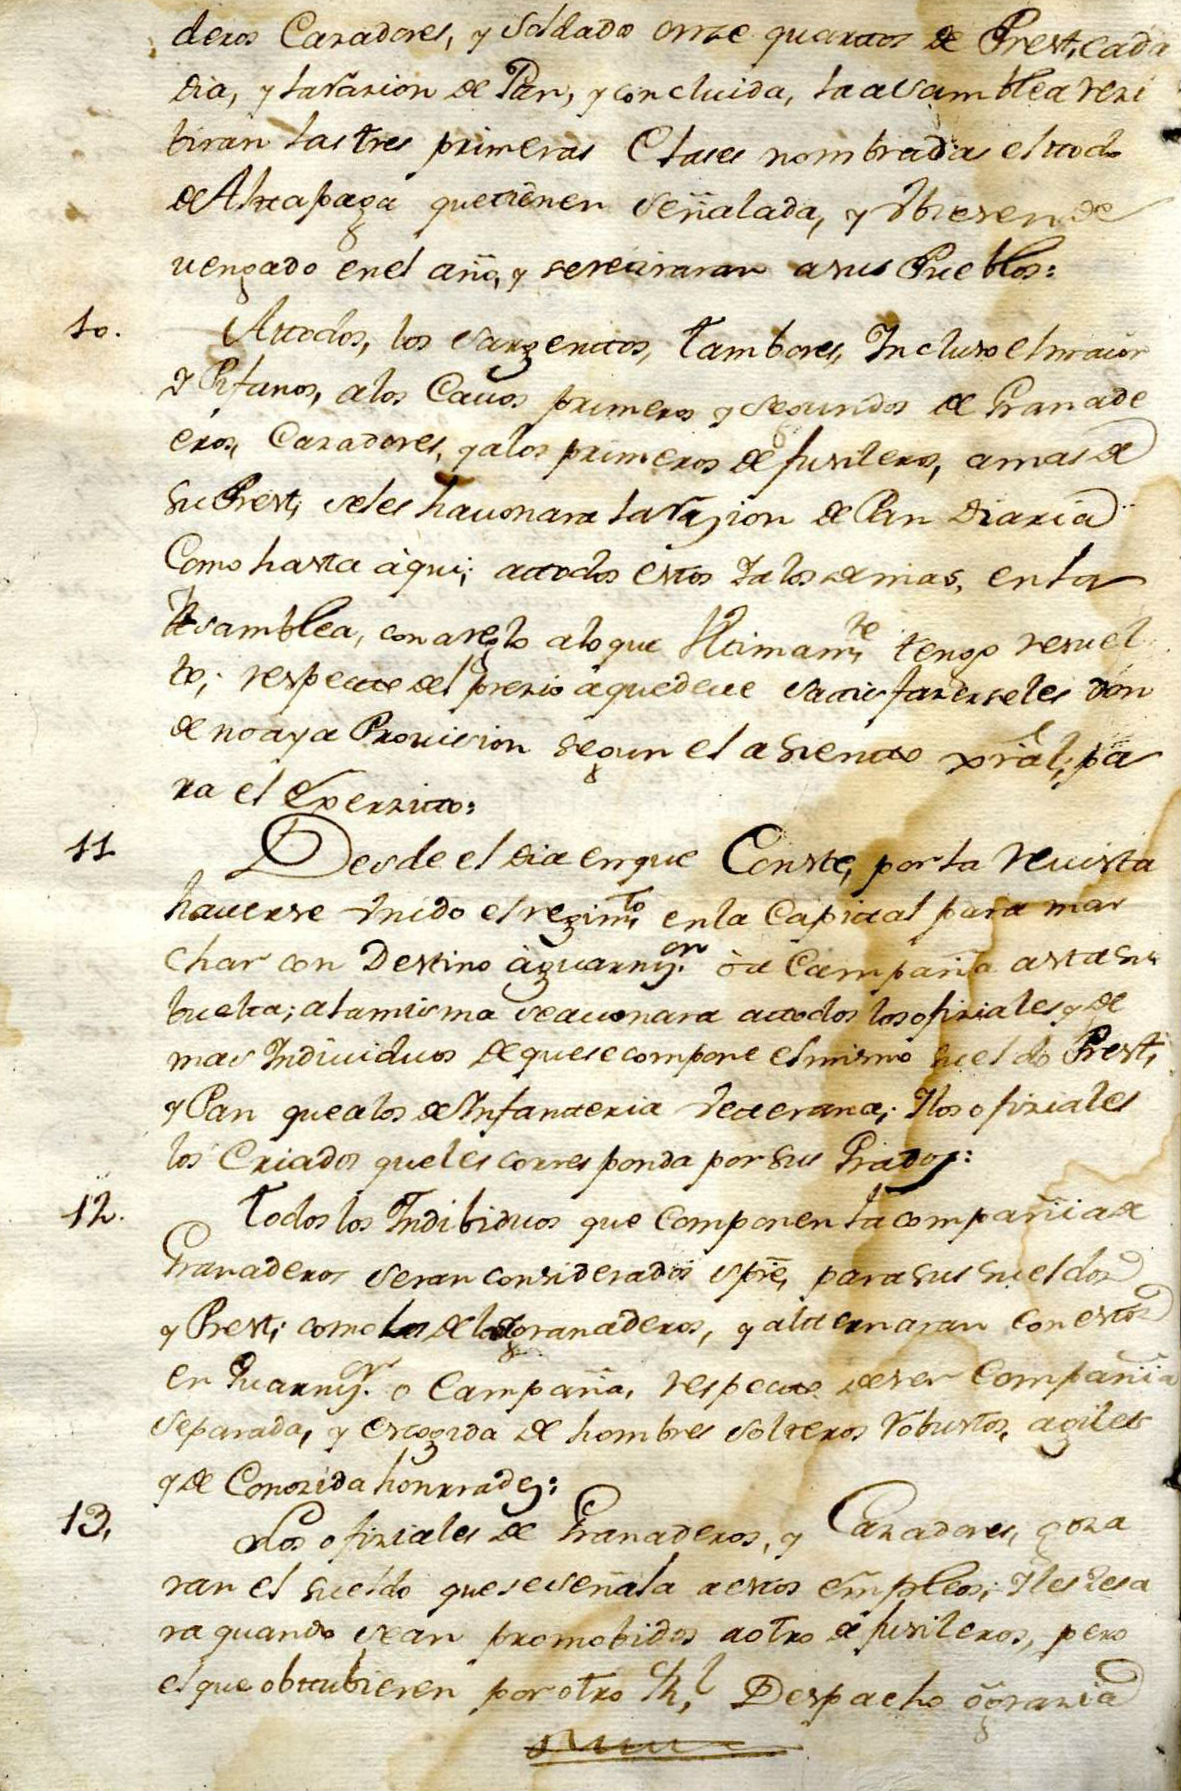 deros Cazadores, y Soldado onze quartos de Prest, cada
dia, y la razion de Pan, y concluida, la asamblea rezi
biran las tres primeras Clases nombradas el todo
de Alta paga que tienen señalada, y ubiesen de
vengado en el año, y se retiraran a sus Pueblos:
10. Attodos, los Sargenttos, Tambores, Incluso el maior
I Pifanos, a los Cavos primeros y Segundos de Granade
eros, Cazadores, y a los primeros de fusileros, a mas de
su Prest; se les havonara la razion de Pan Diaria
Como hasta àqui; attodos estos I a los demas, en la
Asamblea, con areglo a lo que Ultimamte tengo resuel
to; respecto del prezio a que deve sattisfazerseles don
de no aya Provision segun el asiento gral; pa
ra el Exerzitto:
11 Desde el dia en que Conste, por la revista
haverse Unido el regimto en la Capital para mar
char con Destino à guarnijon ò a Campaña asta su
buelta; a la misma se avonara attodos los ofiziales y de
mas Individuos de que se compone el mismo sueldo Prest;
y Pan que a los de Infanteria Veterana; I los ofiziales
los Criados que les corresponda por sus Grados:
12. Todos los Indibiduos que componen la compañia de
Granaderos seran considerados spre, para sus sueldos
y Prest; como los de los granaderos, y alternaran con estos
en Guarnijon o Campaña, respecto de ser Compañia
separada, y escogida de hombres solteros robustos, agiles
y de Conozida honrradez:
13, Los ofiziales de Granaderos, y Cazadores, goza
ran el sueldo que se señala a estos empleos; I les zesa
ra quando sean promobidos a otro de fusileros, pero
el que obttubieren por otro Rl Despacho ò grazia